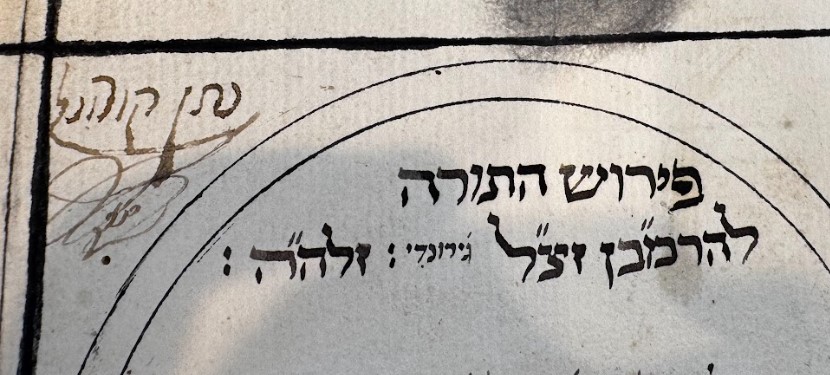 נתן קוהני
פירוש התורה
להרמ״בן זצ״ל גירונדי : זלה״ה :